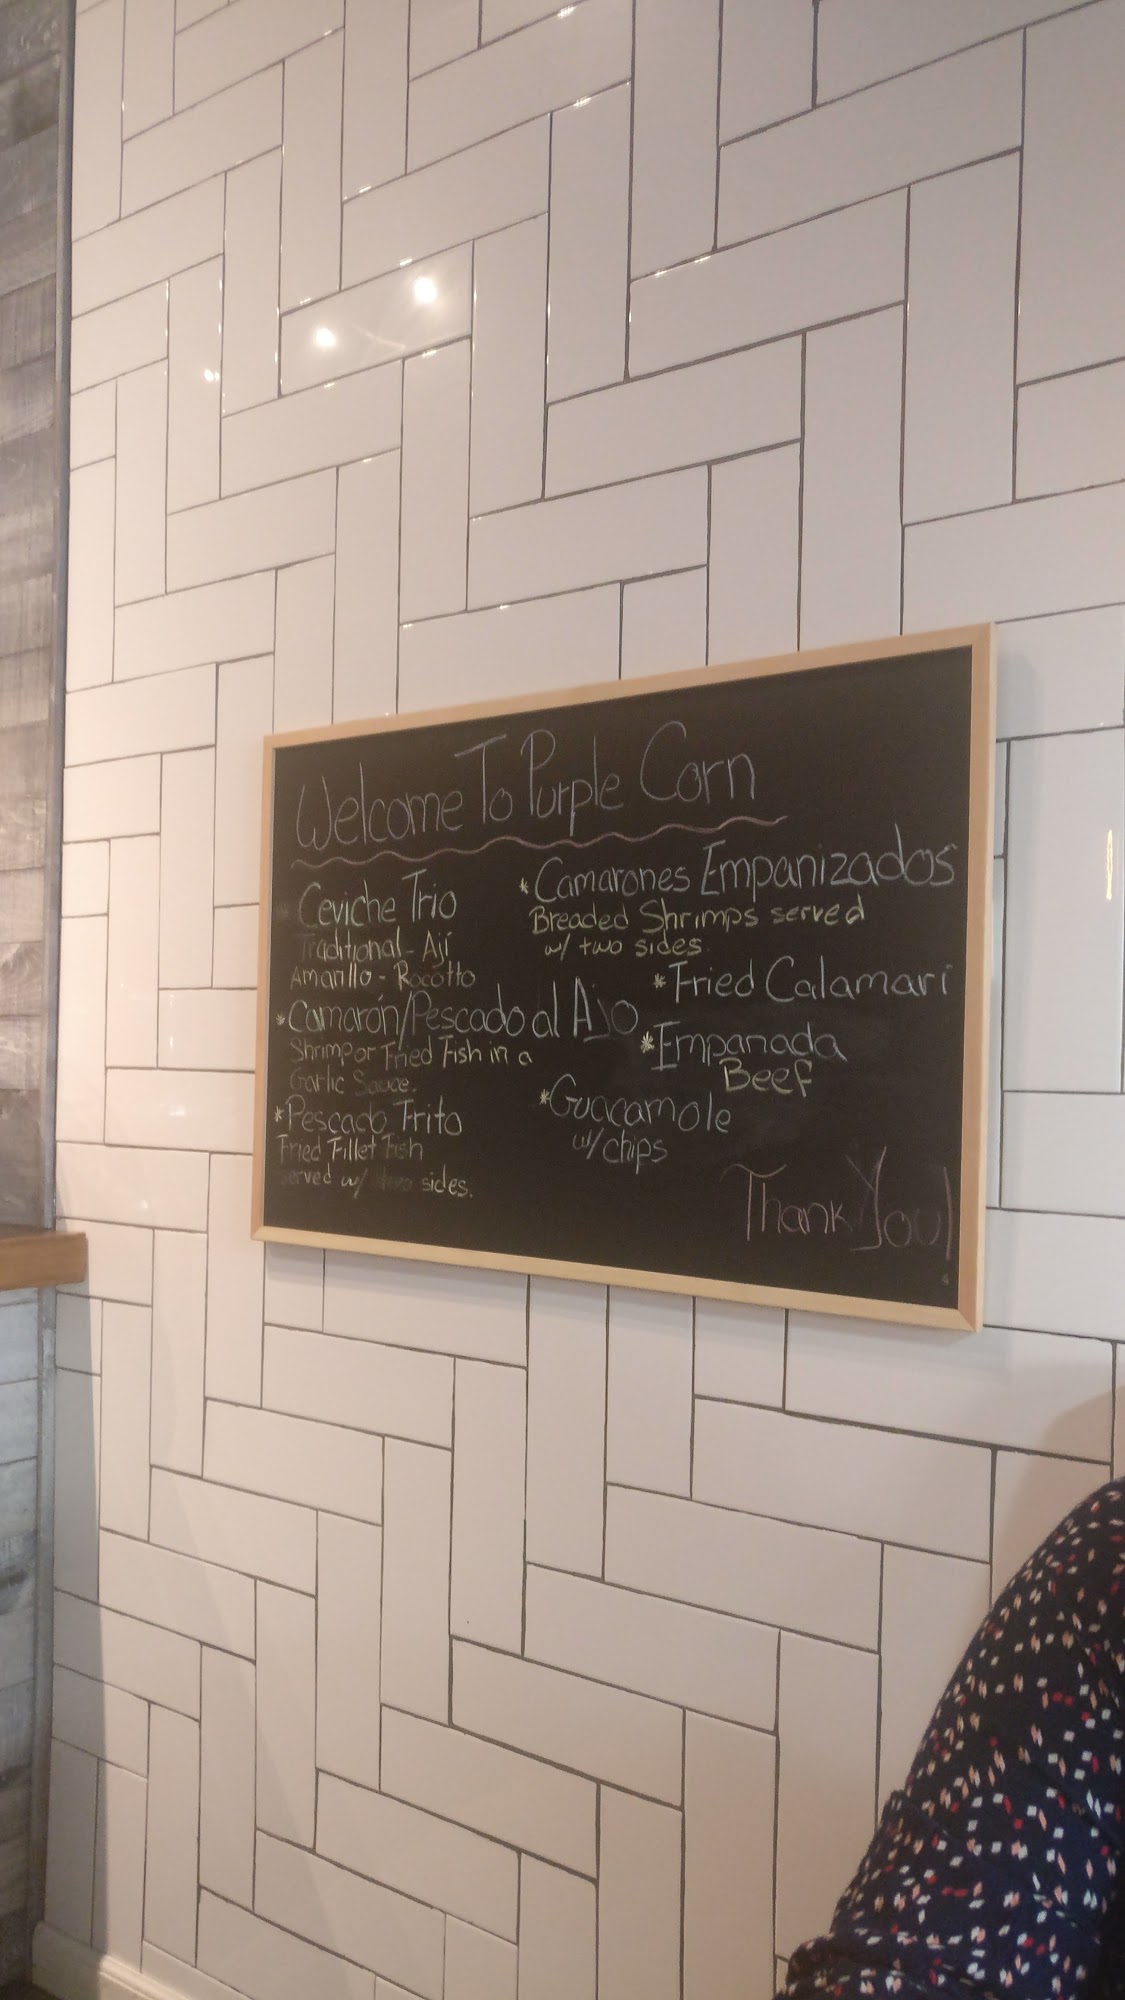 Welcome To Purple Corn
Ceviche Trio
Traditional - Ají
Amarillo - Rocotto
*Camarón/Pescado al Ajo
Shrimp or Fried Fish in a
Garlic Sauce.
*Pescado Frito
Fried Fillet Fish
served w/ two sides.
*Camarones Empanizados
Breaded Shrimps served
w/ two sides.
*Fried Calamari
*Empanada
Beef
*Guacamole
w/ chips
Thank You!